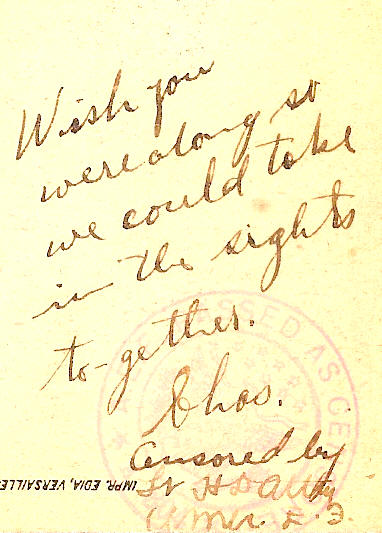 Wish you
were along so
we could take
in the sights
to-gether.
Chas.
Censored by
SSED AS CE
IMPR. EDIA, VERSAILLE